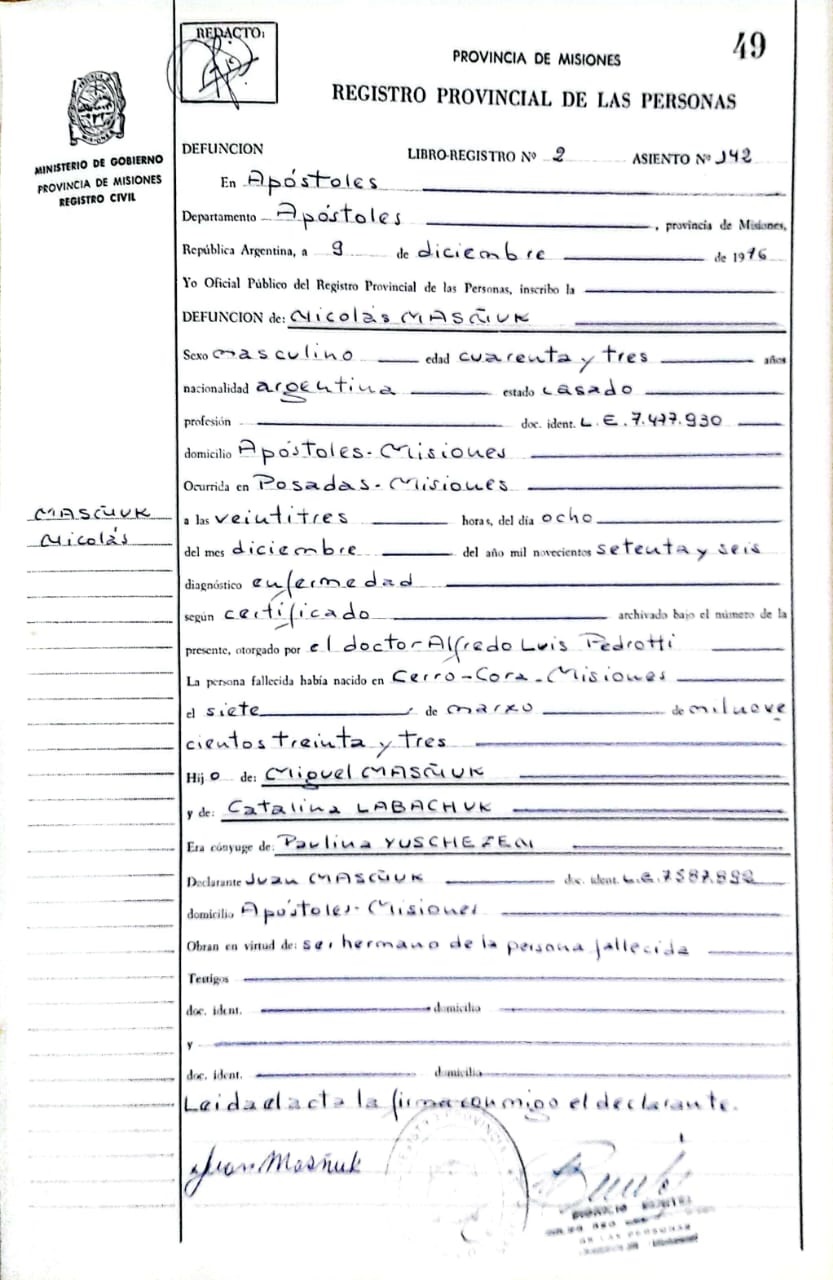 49
REDACTO:
PROVINCIA DE MISIONES
REGISTRO PROVINCIAL DE LAS PERSONAS
MINISTERIO DE GOBIERNO
PROVINCIA DE MISIONES
REGISTRO CIVIL
DEFUNCION LIBRO-REGISTRO Nº 2 ASIENTO Nº 142
En Apóstoles
Departamento Apóstoles, provincia de Misiones,
República Argentina, a 9 de diciembre de 1976
Yo Oficial Público del Registro Provincial de las Personas, inscribo la
DEFUNCION de: Nicolás MASÑUK
Sexo masculino edad cuarenta y tres años
nacionalidad argentina estado casado
profesión doc. ident. L.E. 7.477.930
domicilio Apóstoles-Misiones
Ocurrida en Posadas-Misiones
MASÑUK
Nicolás
a las veintitres horas, del día ocho
del mes diciembre del año mil novecientos setenta y seis
diagnóstico enfermedad
según certificado archivado bajo el número de la
presente, otorgado por el doctor Alfredo Luis Pedrotti
La persona fallecida había nacido en Cerro-Cora-Misiones
el siete de marzo de mil nueve
cientos treinta y tres
Hijo de: Miguel MASÑUK
y de: Catalina LABACHUK
Era cónyuge de: Paulina YUSCHEZEN
Declarante Juan MASÑUK doc. ident. L.E. 7587.892
domicilio Apóstoles-Misiones
Obran en virtud de: ser hermano de la persona fallecida
Testigos
doc. ident. domicilio
y
doc. ident. domicilio
Leida el acta la firma conmigo el declarante.
Juan Masñuk
DE LAS PERSONAS